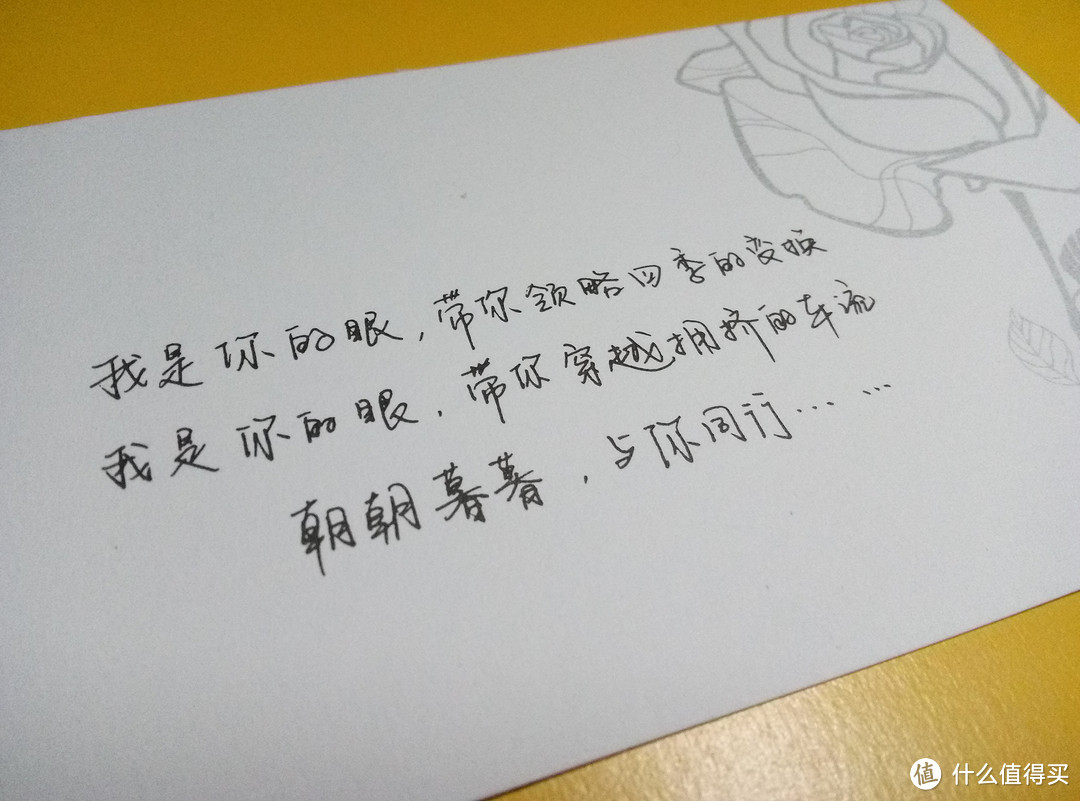 我是你的眼，带你领略四季的变换
我是你的眼，带你穿越拥挤的车流
朝朝暮暮，与你同行……
值 什么值得买